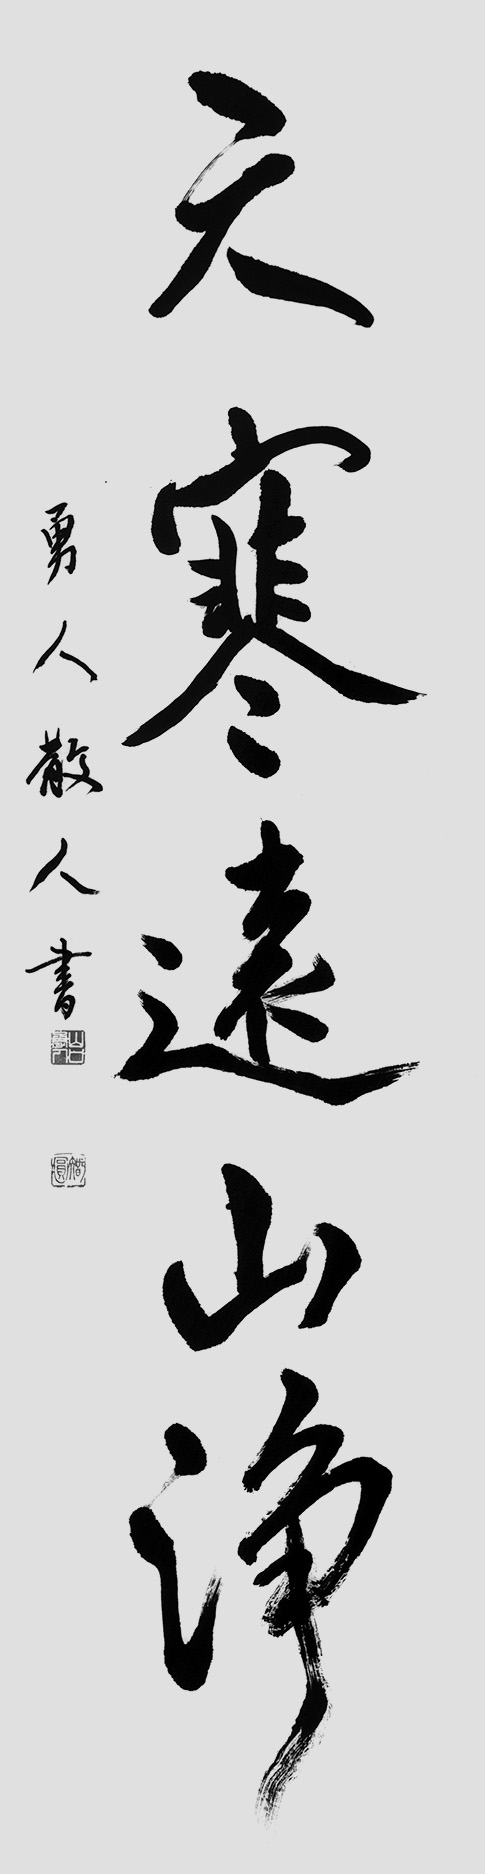 天寒遠山淨
勇人散人書